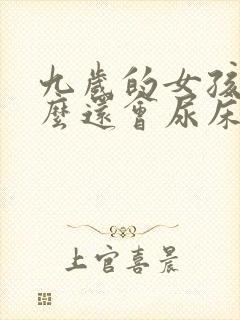 九歲的女孩
麼還會尿床
上官喜晨